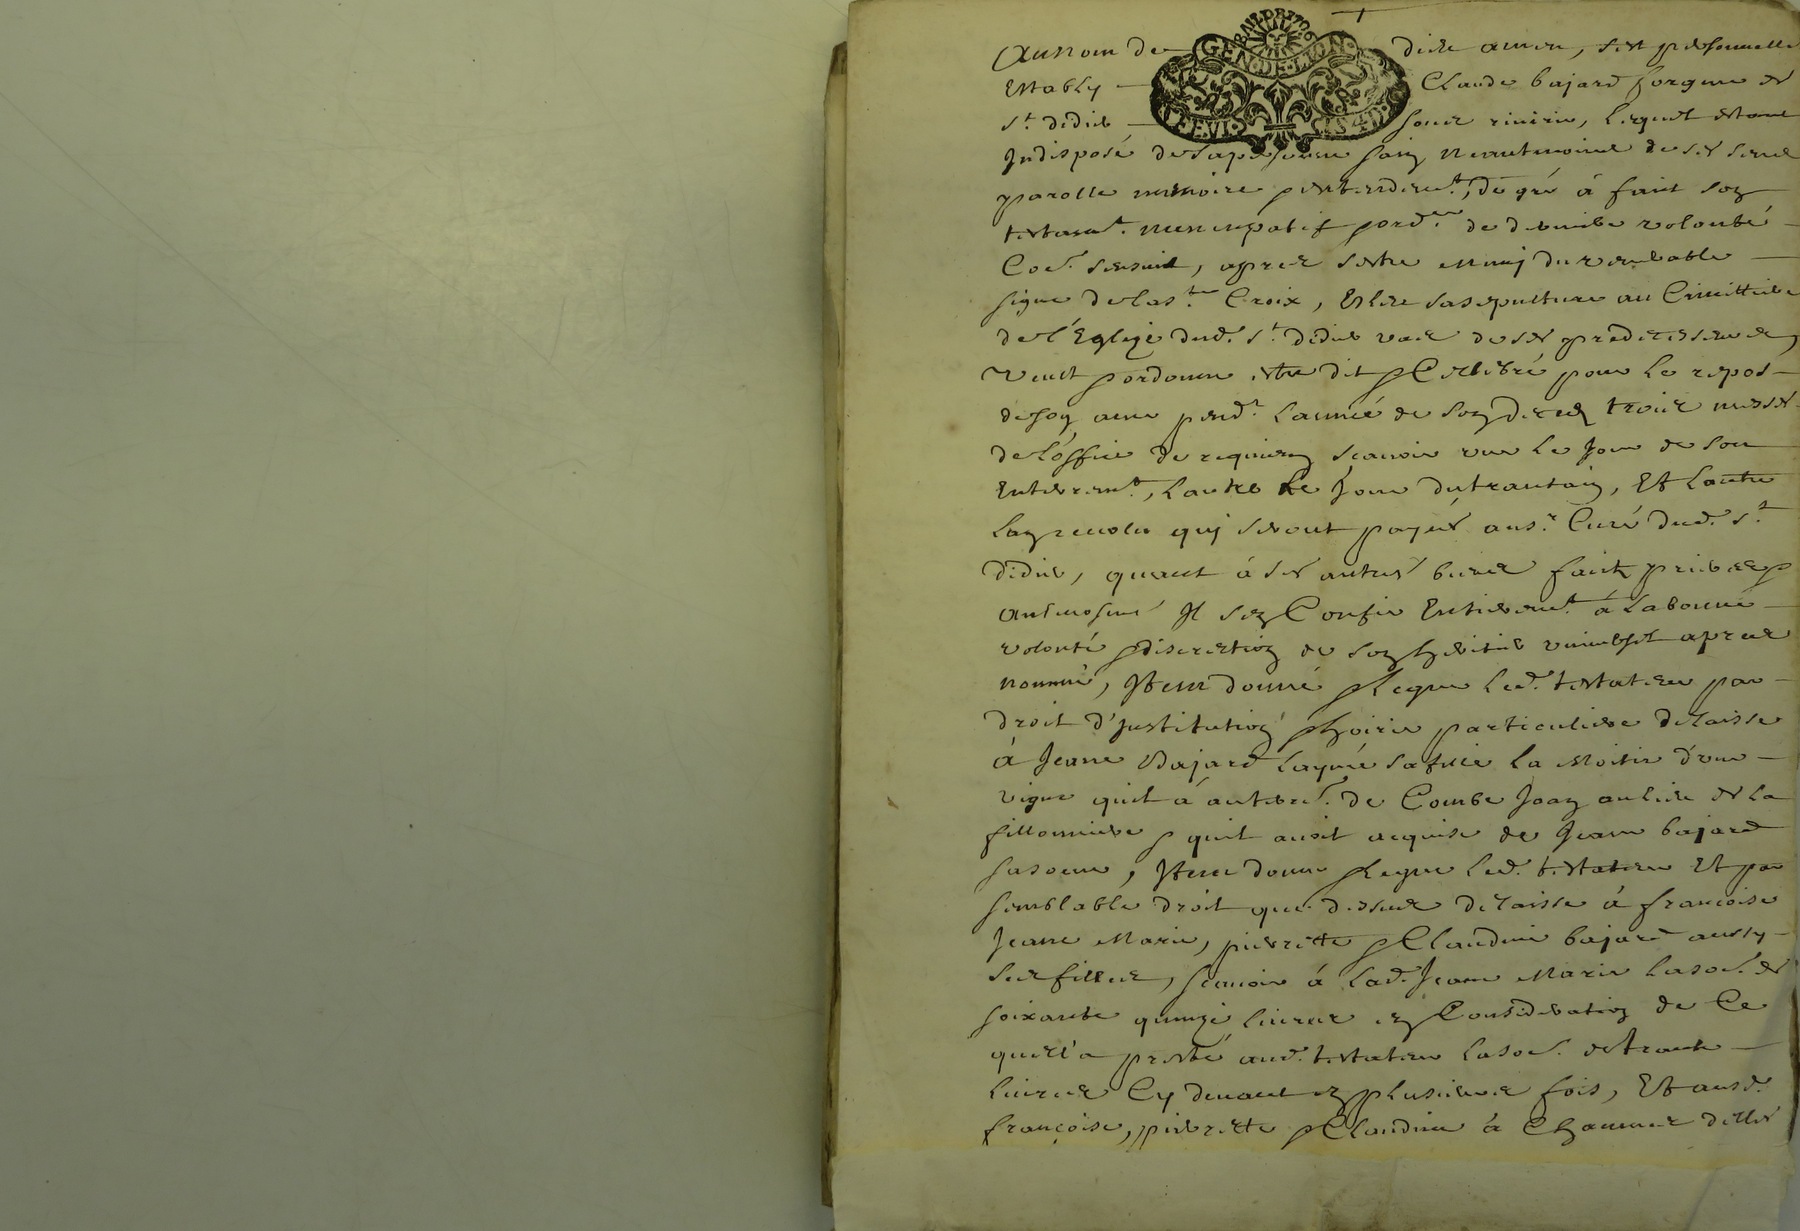 Au nom de dieu amen, s'est personnellem
Estably Claude bajard forgeur de
St. didier sous riviere, lequel estant
Indisposé de sa personne sain neantmoins de ses sens
parolle memoire & entendemt., de gré à fait son
testamt. nuncupatif & ordre. de derniere volonté
Coe. sensuit, apres sestre muny du venerable
signe de la ste. Croix, Eslire sa sepulture au Cimittiere
de l'Eglize dud. St. didier vas de ses predecesseurs,
veult & ordonne estre dit & Cellebré pour le repos
de son ame pendt. l'année de son deces trois messes
de l'office de requiem scavoir une le Jour de son
Enterremt., lautre le Jour du trantain, Et lautre
lan revolu qui seront payés au sr. Curé dud. St.
didier, quant à ses autres biens faits prieres &
aulmosnes Il sen Confie Entieremt. à la bonne
volonté & discretion de son heritier universel apres
nommé, Item donne & legue led. testateur par
droit d'Institution & hoirie particuliere delaisse
à Jeane Bajard laynée sa fille la Moitie d'une
vigne quil à au de Combe Joan au lieu de la
fillonniere & quil avoit acquise de Jeane bajard
sa soeur, Item donne & legue led. testateur Et par
semblable droit que dessus delaisse à francoise
Jeane Marie, pierrette & Claudine bajard aussy
ses filles, scavoir à lad. Jeane Marie la soe. de
soixante quinze livres en Consideration de Ce
quell'a presté aud. testateur la soe. de trante
livres Cy devant en plusieurs fois, Et ausd.
françoise, pierrette & Claudine à Chacune delles
GEN. DE LION